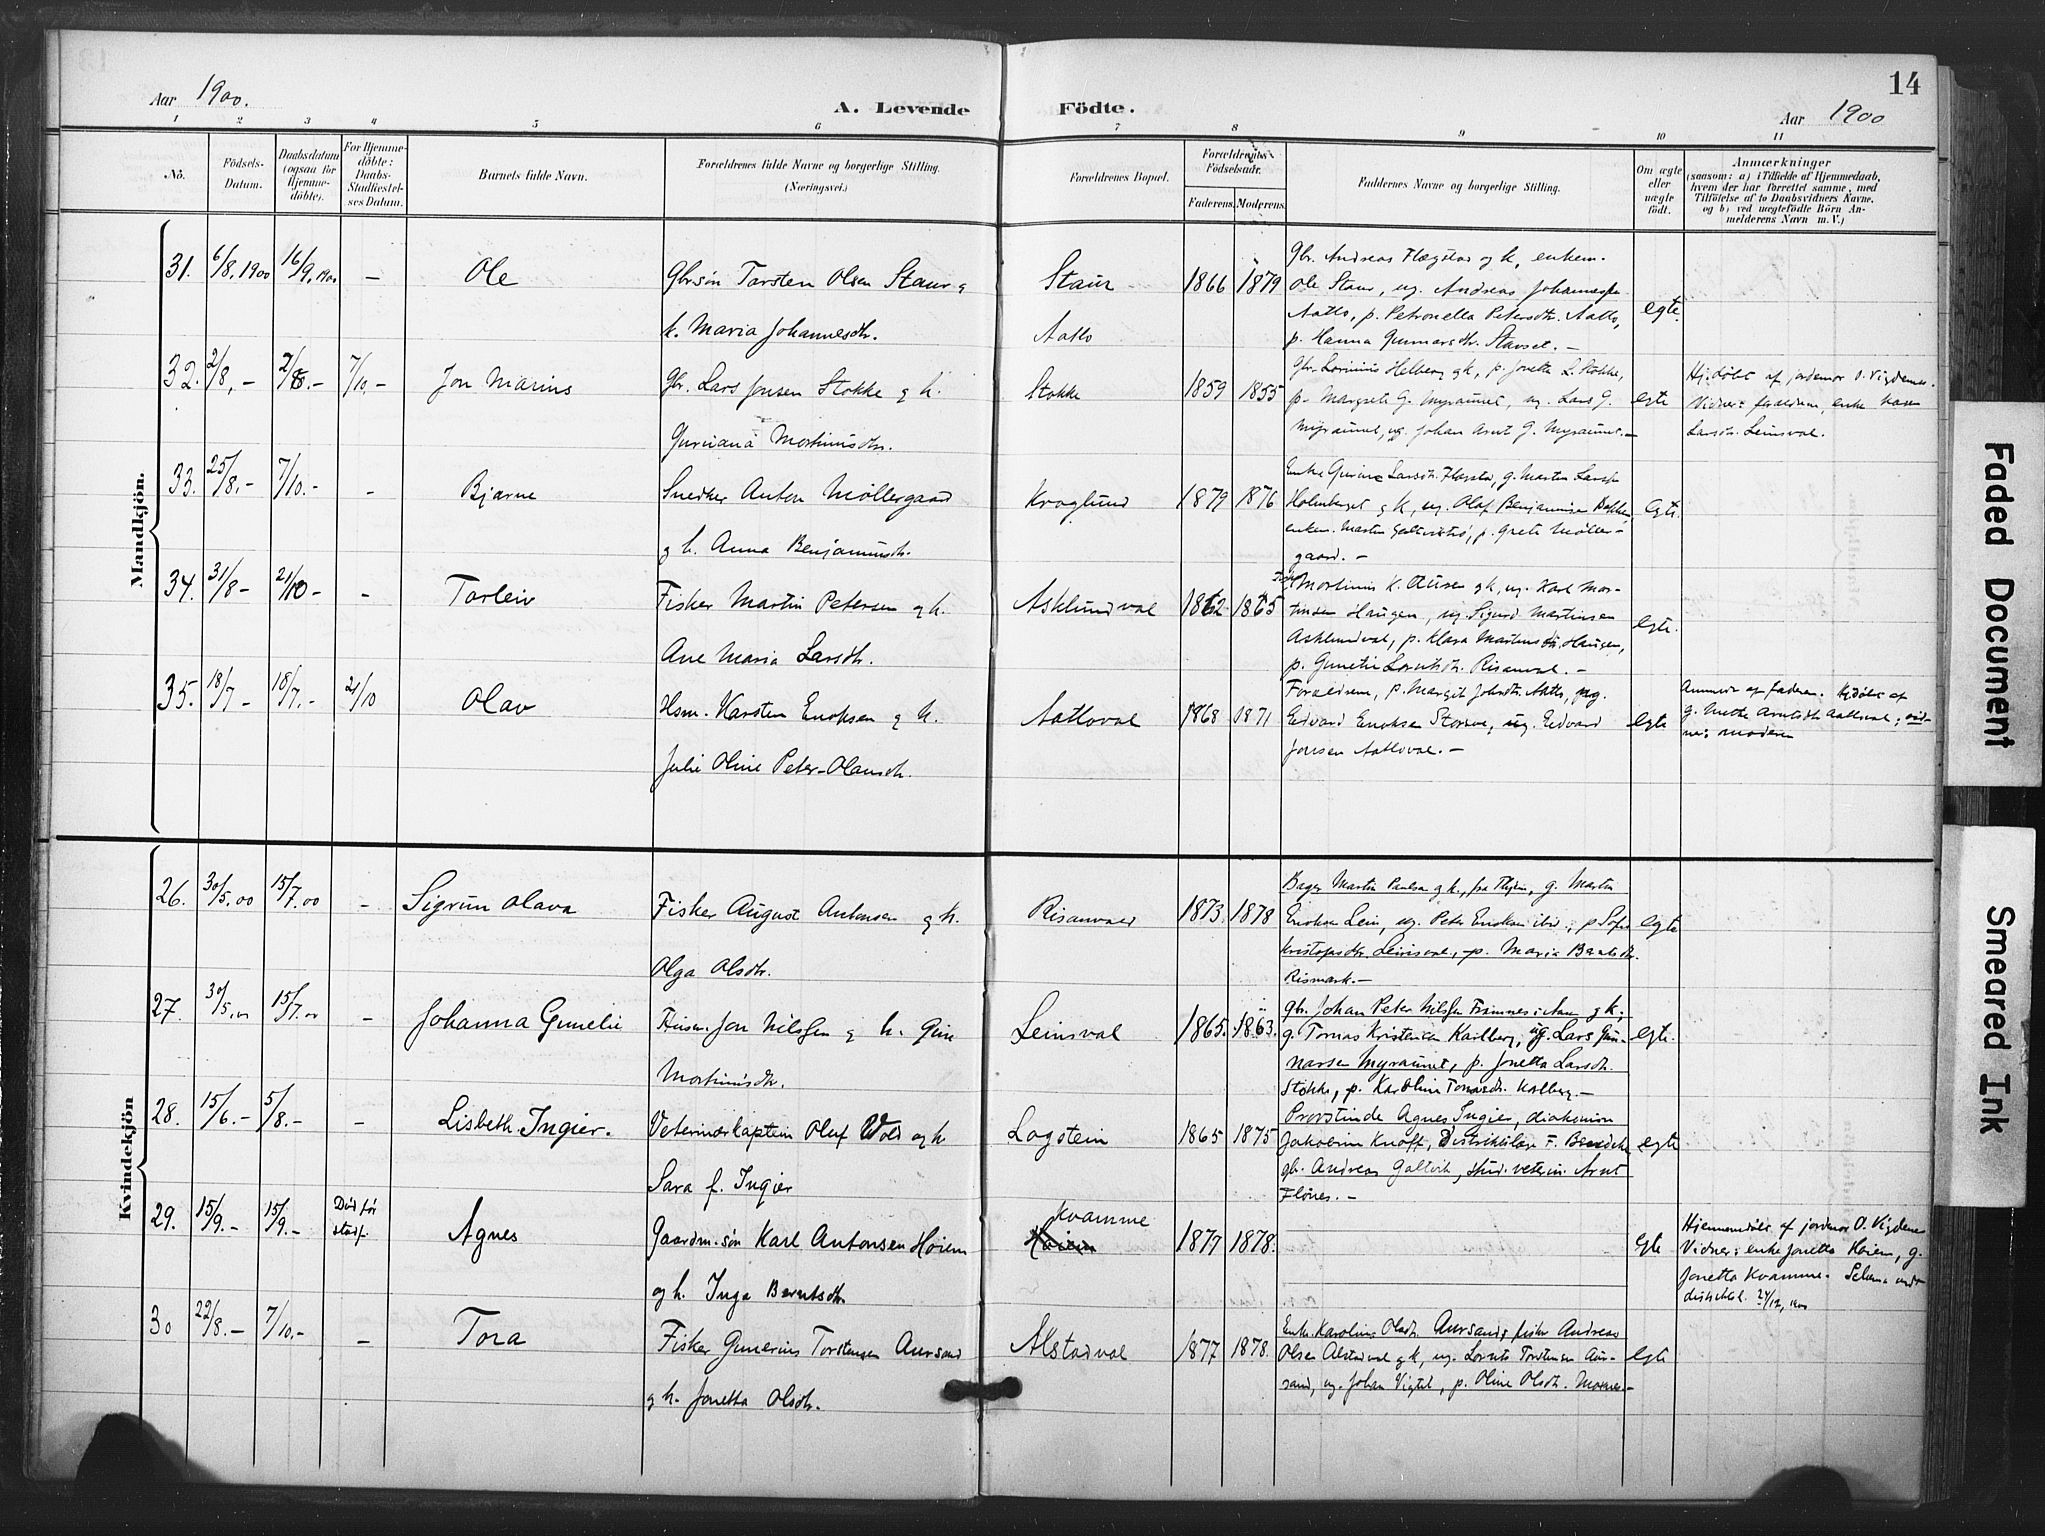 14
Aar 1900.
A. Levende Födte.
Aar 1900
1 2 3 4 5 6 7 8 9 10 11
No.
Födsels-
Datum.
Daabsdatum
(ogsaa för
Hjemme-
döbte).
For Hjemme-
döbte:
Daabs-
Stadfæstel-
ses Datum.
Barnets fulde Navn.
Forældrenes fulde Navne og borgerlige Stilling.
(Næringsvei.)
Forældrenes Bopæl.
Forældrenes
Födselsaar.
Faderens. Moderens.
Faddernes Navne og borgerlige Stilling.
Om ægte
eller
uægte
födt.
Anmærkninger
(saasom: a) i Tilfælde af Hjemmedaab,
hvem der har forrettet samme, med
Tilföielse af to Daabsvidners Navne,
og b) ved uægtefödte Börn An-
melderens Navn m. V.)
Mandkjön.
31. 6/8.1900 16/9.1900 - Ole
Gbrsøn Torsten Olsen Staur og
k. Maria Johannesdtr.
Staur
Aatlo
1866 1879
Gbr. Andreas Flægstad og k, enkem.
Ole Staur, ug. Andreas Johannes
Aatlo, p. Petronella Petersdtr. Aatlo,
p. Hanna Gunnarsdtr. Stavset. -
egte.
32. 2/8,- 2/8.- 7/10.- Jon Marius
Gbr. Lars Jonsen Stokke og k.
Guruana Mortinusdtr.
Stokke
1859 1855
Gbr. Lorinius Helberg og k, p. Jonetta L. Stokke,
p. Margrete G. Myraunet, ug. Lars G.
Myraunet, ug. Johan Arnt G. Myraunet. -
egte
Hj. døbt af jordemor O. Vigdenes.
Vidner: forældrene, enke Karen
Larsdtr. Leinsval.
33. 25/8.- 7/10.- - Bjarne
Snedker Anton Møllergaard
og k. Anna Benjaminsdtr.
Kroglund
1879 1876
Enke Gurine Larsdtr. Flægstad, g. Martin Larsen
Holmberget og k, ug. Olaf Benjaminsen Bakken,
enkem. Martin Galtvik, p. Grete Møller-
gaard. -
Egte.
34. 31/8- 21/10- - Torleiv
Fisker Martin Petersen og k.
Ane Maria Larsdtr.
Asklundval
1862 1865
Mortinus K. Ausen og k, ug. Karl Mor-
tinsen Haugen, ug. Sigurd Martinsen
Asklundval, p. Klara Martinsdtr. Haugen,
p. Gunetie Lorntsdtr. Risanval. -
egte.
35. 18/7- 18/7.- 21/10 Olav
Hsm. Karsten Enoksen og k.
Julie Oline Peter-Olausdtr.
Aatloval
1868 1871
Forældrene, p. Margit Johsdtr. Aatlo, ug.
Edvard Enoksen Storeve, ug. Edvard
Jonsen Aatloval. -
egte
Anmeldt af faderen. Hj.døbt af
g. Mette Arntsdtr. Aatloval; vid-
ne: moderen
Kvindekjön
26. 30/5.00 15/7.00 - Sigrun Olava
Fisker August Antonsen og k.
Olga Olsdtr.
Risanvald
1873. 1878
Bager Martin Paulsen og k., fra Thjem, g. Martin
Eriksen Lein, ug. Peter Eriksen ibid.; p. Sofie
Kristofersdtr. Leinsval, p. Maria Berntsdtr.
Rismark. -
egte
27. 30/5.00 15/7.00 - Johanna Gunelie
Husm. Jon Nilsen og k. Gine
Mortinusdtr.
Leinsval
1865. 1863.
gbr. Johan Peter Nilsen Framnes i Aure og k,
g. Tomas Kristensen Karlberg, ug. Lars Gun-
narsen Myraunet, p. Jonetta Larsdtr.
Stokke, p. Karoline Tomasdtr. Karlberg. -
egte.
28. 15/6.- 5/8.- - Lisbeth Ingier.
Veterinærkaptein Olaf Wold og k
Sara f. Ingier
Logstein
1865 1875
Provstinde Agnes Ingier, diakonisse
Jakobine Knoff, Distriktslæge F. Bredeke
gbr. Andreas Galtvik, stud. veterin. Arnt
Flønes. -
egte
29. 15/9.- 15/9.- Død før
stadf. Agnes
Gaardm.-søn Karl Antonsen Høiem
og k. Inga Berntsdtr.
Kvamme
Høiem
1877 1878.
Egte
Hjemmedøbt af jordemor O. Vigdenes
Vidner: enke Jonetta Høiem, g.
Jonetta Kvamme. Schema
distriktsl. 24/12, 1900
30 22/8.- 7/10.- - Tora
Fisker Gunerius Torstensen Aursand
og k. Jonetta Olsdtr.
Alstadval
1877 1878.
Enke Karoline Olsdtr. Aursand, fisker Andreas
Olsen Alstadval og k, ug. Lornts Torstensen Aur-
sand, ug. Johan Vigtil, p. Oline Olsdtr. Mosnes. -
egte
Faded Document
Smeared Ink